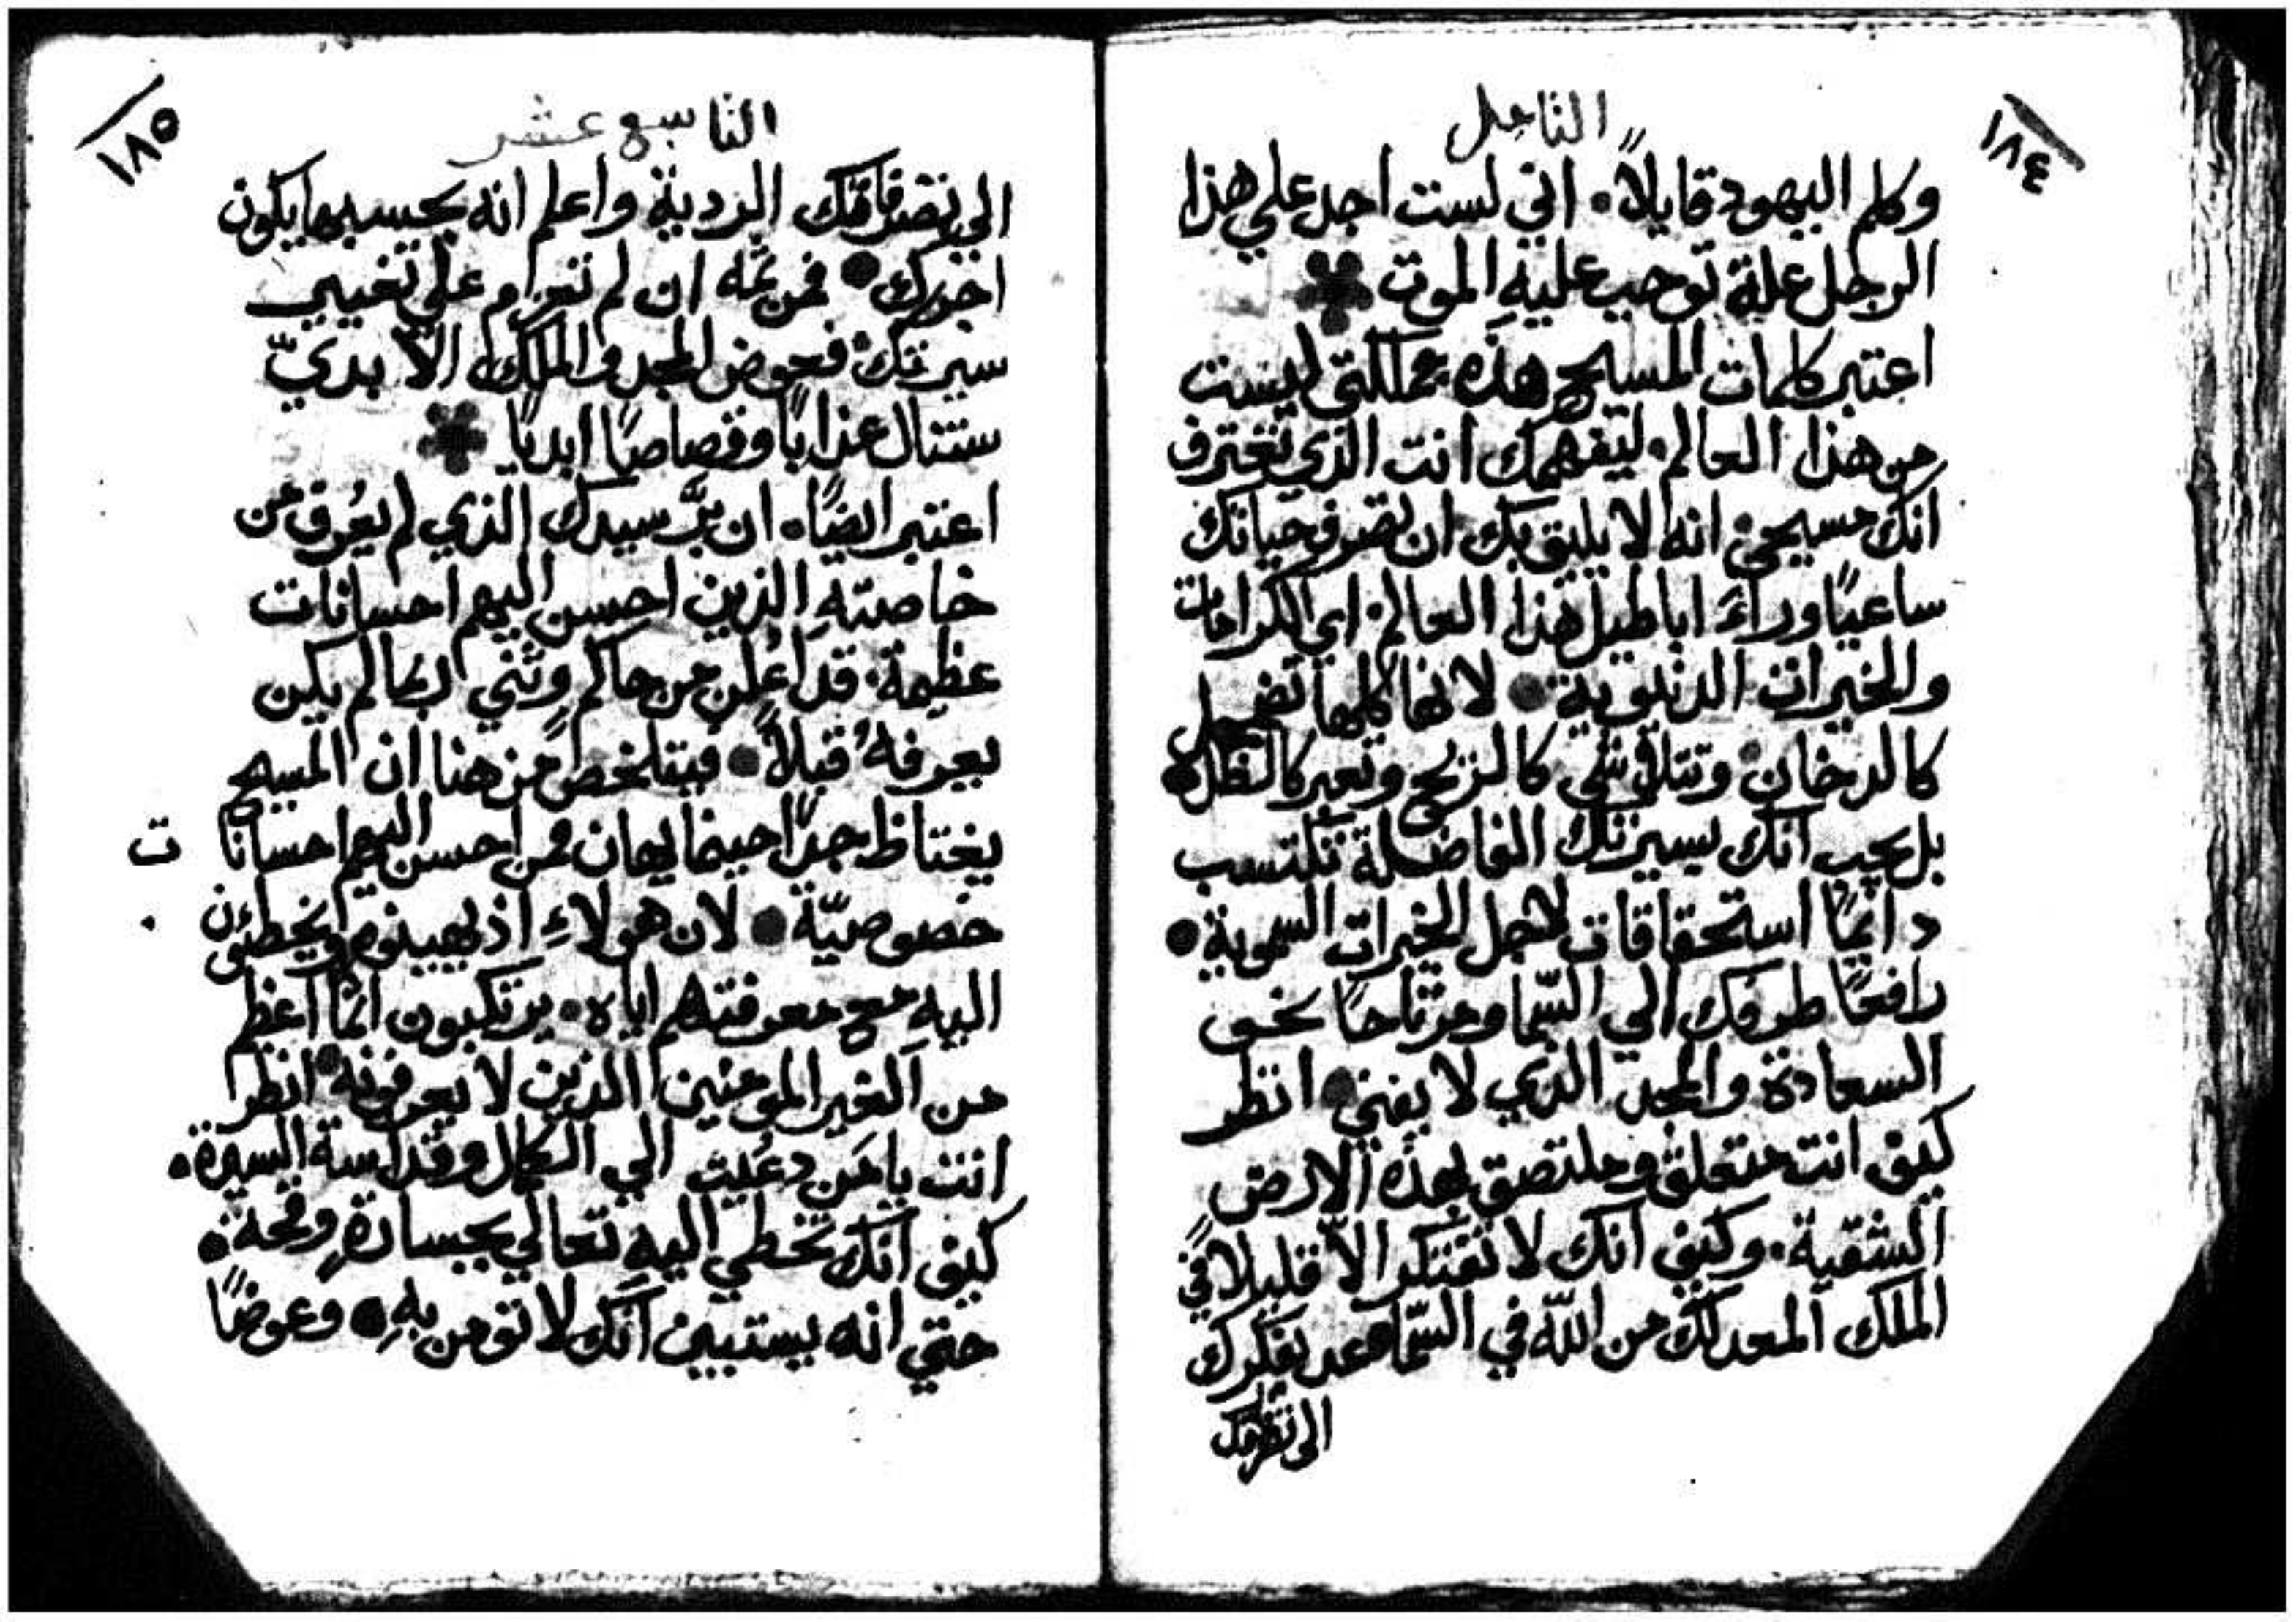 ١٨٤
التامل
وكلم اليهود قايلاً. اني لست اجد علي هذا
الرجل علة توجب عليه الموت
اعتبر كلمات المسيح هذه مملكتي ليست
من هذا العالم. ليتفهمك انت الذي تعترف
انك مسيحي. انه لا يليق بك ان تصرف حياتك
ساعيًا وراءَ اباطيل هذا العالم. اي الكرامات
والخيرات الدنيوية. لانها كلها تضمحل
كالدخان. وتتلاشي كالريح وتعبر كالظل.
بل يجب انك بسيرتك الفاضلة تكتسب
دائمًا استحقاقات لاجل الخيرات السموية.
رافعًا طرفك الي السّما ومرتاحًا نحو
السعادة والمجد الذي لا يفني. انظر
كيف انت متعلق وملتصق بهذه الارض
الشقية. وكيف انك لا تفتكر الاّ قليلاً في
الملك المعد لك من اللّه في السّما معد تفكرك
الى تصرفك
١٨٥
التاسع عشر
الي تصرفاتك الردية واعلم انه بحسبها يكون
اجرك. فمن ثمه ان لم تعزم علي تغيير
سيرتك. فعوض المجد والملك الابديّ
ستنال عذابًا وقصاصًا ابديًا
اعتبر ايضًا. ان برَّ سيدك الذي لم يُعرف من
خاصتهِ الذين احسن اليهم احسانات
عظيمة. قد اُعلن من حاكم وثني ربما لم يكن
يعرفهُ قبلاً. فيتلخص من هنا ان المسيح
يغتاظ جدًا حينما يهان ممن احسن اليهم احسانا
ت
خصوصيّة. لان هولاءِ اذ يهينوه ويخطئون
اليه مع معرفتهم اياه. يرتكبون اثمًا اعظم
من الغير المومنين الذين لا يعرفونه. انظر
انت يا مَن دعُيت الي الكمال وقداسة السيرة.
كيف انك تخطي اليه تعالي بجسارةٍ وقحة.
حتي انه يستبين انك لا تومن بهِ. وعوضًا